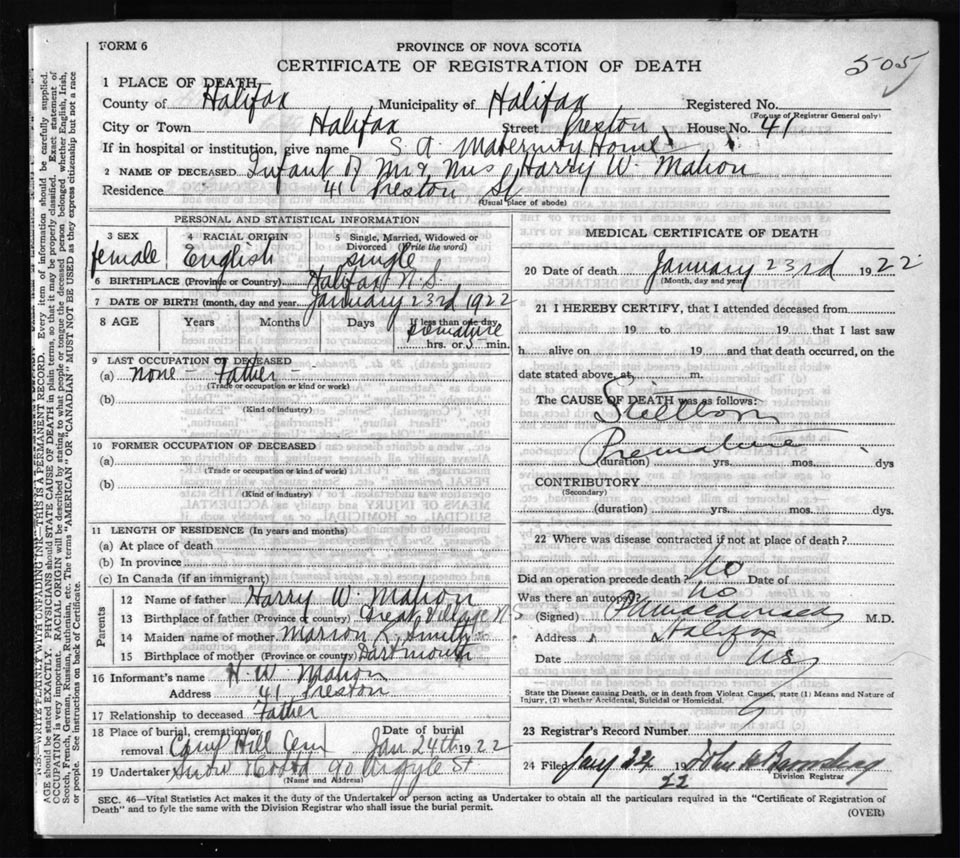 FORM 6
PROVINCE OF NOVA SCOTIA
CERTIFICATE OF REGISTRATION OF DEATH
505
1 PLACE OF DEATH
County of Halifax Municipality of Halifax Registered No.
(For use of Registrar General only)
City or Town Halifax Street Preston House No. 41
If in hospital or institution, give name S. A. Maternity Home
2 NAME OF DECEASED Infant of Mr & Mrs Harry W. Mahon
Residence 41 Preston St.
(Usual place of abode)
PERSONAL AND STATISTICAL INFORMATION
3 SEX 4 RACIAL ORIGIN 5 Single, Married, Widowed or Divorced (Write the word)
female English single
6 BIRTHPLACE (Province or Country) Halifax N.S.
7 DATE OF BIRTH (month, day and year) January 23rd 1922
8 AGE Years Months Days If less than one day
hrs. or 5 min.
9 LAST OCCUPATION OF DECEASED
(a) none - Father -
(Trade or occupation or kind of work)
(b)
(Kind of industry)
10 FORMER OCCUPATION OF DECEASED
(a)
(Trade or occupation or kind of work)
(b)
(Kind of industry)
11 LENGTH OF RESIDENCE (In years and months)
(a) At place of death
(b) In province
(c) In Canada (if an immigrant)
Parents
12 Name of father Harry W. Mahon
13 Birthplace of father (Province or Country) Great Village N S
14 Maiden name of mother Marion K. Smith
15 Birthplace of mother (Province or country) Dartmouth
16 Informant's name H. W. Mahon
Address 41 Preston
17 Relationship to deceased Father
18 Place of burial, cremation or removal Camp Hill Cem Date of burial Jan 24th 1922
19 Undertaker Snow 90 Argyle St
(Name and Address)
MEDICAL CERTIFICATE OF DEATH
20 Date of death January 23rd 1922
(Month, day and year)
21 I HEREBY CERTIFY, that I attended deceased from
19 to 19 that I last saw
h alive on 19 and that death occurred, on the
date stated above, at m.
The CAUSE OF DEATH was as follows:
Stillborn
Premature
(duration) yrs. mos. dys
CONTRIBUTORY
(Secondary)
(duration) yrs. mos. dys.
22 Where was disease contracted if not at place of death?
Did an operation precede death? No Date of
Was there an autopsy? No
(Signed) M.D.
Address Halifax
Date
State the Disease causing Death, or in death from Violent Causes, state (1) Means and Nature of Injury, (2) whether Accidental, Suicidal or Homicidal.
23 Registrar's Record Number
24 Filed 19 22 John
Division Registrar
SEC. 46—Vital Statistics Act makes it the duty of the Undertaker or person acting as Undertaker to obtain all the particulars required in the "Certificate of Registration of
Death" and to fyle the same with the Division Registrar who shall issue the burial permit.
(OVER)
N.B.—WRITE PLAINLY WITH UNFADING INK—THIS IS A PERMANENT RECORD. Every item of information should be carefully supplied.
AGE should be stated EXACTLY. PHYSICIANS should STATE CAUSE OF DEATH in plain terms, so that it may be properly classified. Exact statement of
OCCUPATION is very important. RACIAL ORIGIN will be described by stating to what people or tongue the deceased person belonged whether English, Irish,
Scotch, French, German, Russian, Ruthenian, etc. The terms "AMERICAN" OR "CANADIAN" MUST NOT BE USED as they express citizenship but not a race
or people. See instructions on back of Certificate.